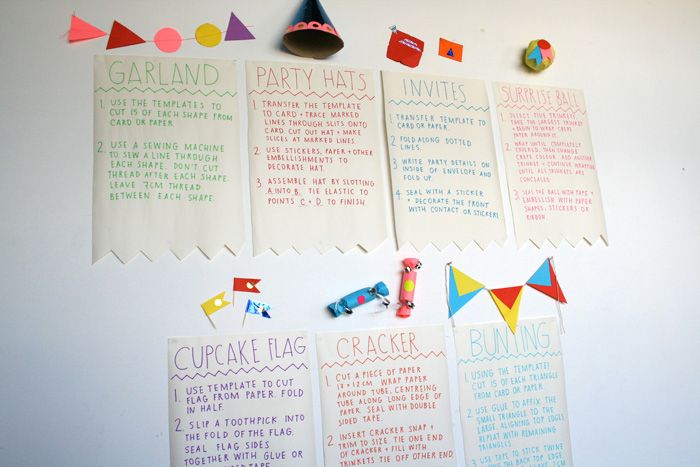 GARLAND
1. USE THE TEMPLATES TO
CUT 15 OF EACH SHAPE FROM
CARD OR PAPER
2. USE A SEWING MACHINE
TO SEW A LINE THROUGH
EACH SHAPE. DON'T CUT
THREAD AFTER EACH SHAPE.
LEAVE 7CM THREAD
BETWEEN EACH SHAPE.
PARTY HATS
1. TRANSFER THE TEMPLATE
TO CARD + TRACE MARKED
LINES THROUGH SLITS ONTO
CARD. CUT OUT HAT + MAKE
SLICES AT MARKED LINES.
2. USE STICKERS, PAPER + OTHER
EMBELLISHMENTS TO
DECORATE HAT.
3. ASSEMBLE HAT BY SLOTTING
A INTO B. TIE ELASTIC TO
POINTS C + D TO FINISH.
INVITES
1. TRANSFER TEMPLATE
TO CARD OR PAPER.
2. FOLD ALONG DOTTED
LINES.
3. WRITE PARTY DETAILS ON
INSIDE OF ENVELOPE AND
FOLD UP.
4. SEAL WITH A STICKER
+ DECORATE THE FRONT
WITH CONTACT OR STICKERS
SURPRISE BALL
1. SELECT FIVE TRINKETS
TAKE THE LARGEST TRINKET
+ BEGIN TO WRAP CREPE
PAPER AROUND IT.
2. WRAP UNTIL COMPLETELY
COVERED, THEN CHANGE
CREPE COLOUR. ADD ANOTHER
TRINKET + CONTINUE WRAPPING
UNTIL ALL TRINKETS ARE
CONCEALED
3. SEAL THE BALL WITH TAPE +
EMBELLISH WITH PAPER
SHAPES, STICKERS OR
RIBBON.
CUPCAKE FLAG
1. USE TEMPLATE TO CUT
FLAG FROM PAPER. FOLD
IN HALF.
2. SLIP A TOOTHPICK INTO
THE FOLD OF THE FLAG.
SEAL FLAG SIDES
TOGETHER WITH GLUE OR
TAPE.
CRACKER
1. CUT A PIECE OF PAPER
18 x 12 CM. WRAP PAPER
AROUND TUBE. CENTREING
TUBE ALONG LONG EDGE OF
PAPER. SEAL WITH DOUBLE
SIDED TAPE.
2. INSERT CRACKER SNAP +
TRIM TO SIZE. TIE ONE END
OF CRACKER + FILL WITH
TRINKETS TIE OFF OTHER END.
BUNTING
1. USING THE TEMPLATE
CUT 15 OF EACH TRIANGLE
FROM CARD OR PAPER.
2. USE GLUE TO AFFIX THE
SMALL TRIANGLE TO THE
LARGE, ALIGNING TOP EDGES
REPEAT WITH REMAINING
TRIANGLES.
3. USE TAPE TO STICK TWINE
BACK TOP EDGE